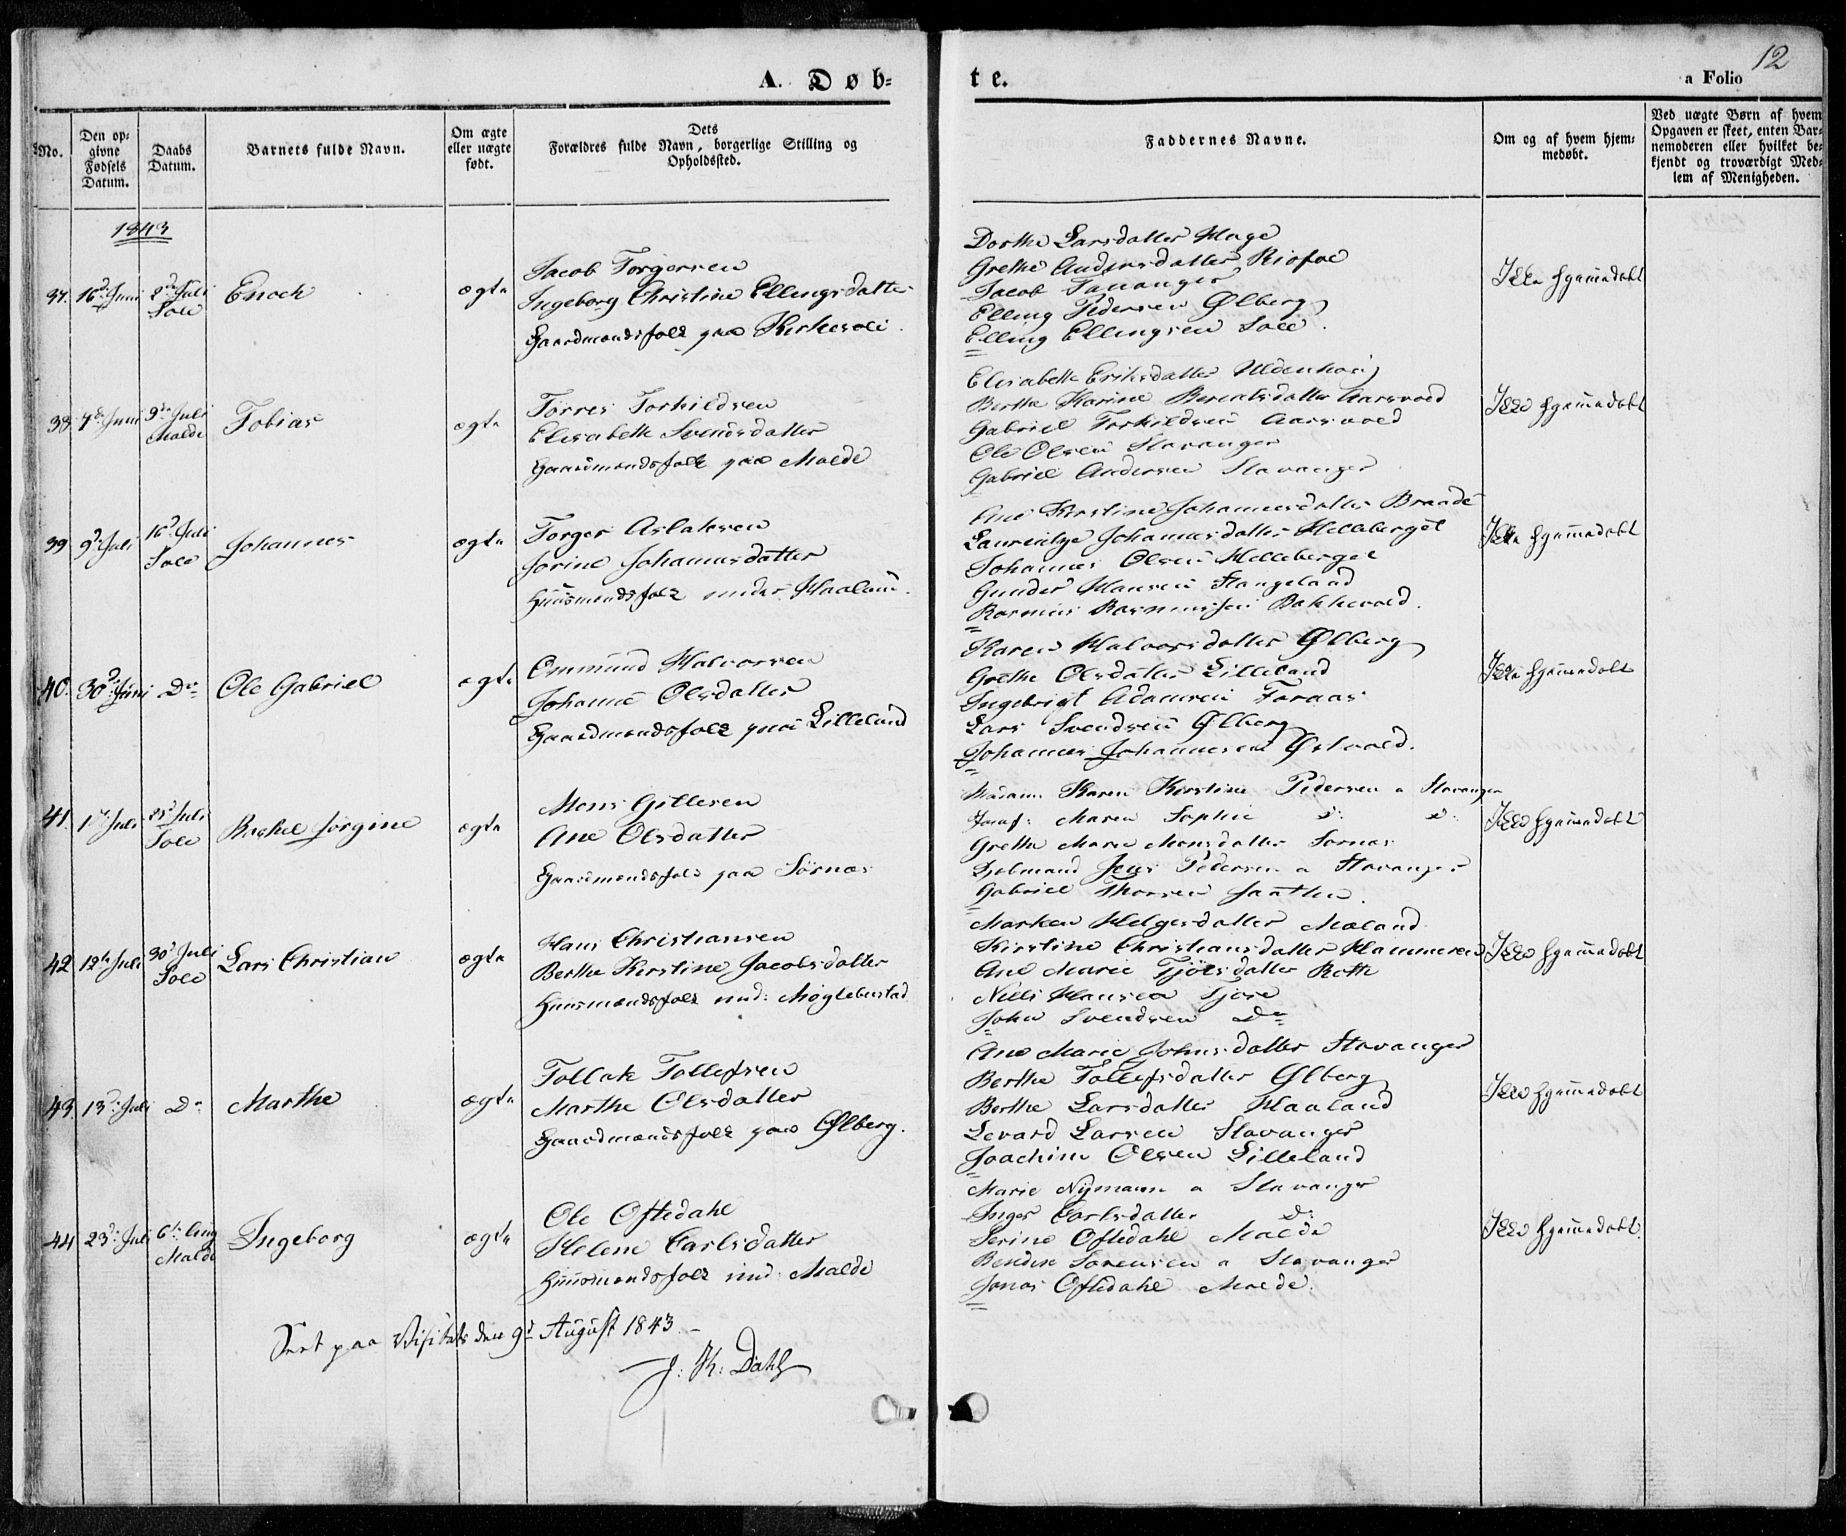 12
A. Døb-
te.
a Folio
No.
Den op-
givne
Fødsels
Datum.
Daabs
Datum.
Barnets fulde Navn.
Om ægte
eller uægte
født.
Dets
Forældres fulde Navn, borgerlige Stilling og
Opholdssted.
Faddernes Navne.
Om og af hvem hjem-
medøbt.
Ved uægte Børn af hvem
Opgaven er skeet, enten Bar-
nemoderen eller hvilket be-
kjendt og troværdigt Med-
lem af Menigheden.
1843
37. 16d: Juni
2den Juli
Sole
Enoch
ægte
Jacob Torgersen
Ingeborg Christine Ellingsdatter
Gaardmandsfolk paa Kirkesole.
Dorthe Larsdatter Hage
Grethe Andersdatter Riofoe
Jacob Tananger
Elling Pedersen Ølberg
Elling Ellingsen Sole.
Ikke hjemmedøbt
38. 7de Juni
9de Juli
Malde
Tobias
ægte
Tørres Torkildsen
Elisabeth Svendsdatter
Gaardmandsfolk paa Malde
Elisabeth Eriksdatter
Berthe Karine Berentsdatter Aarsvold
Gabriel Torkildsen Aarsvold
Ole Olsen Stavanger
Gabriel Andersen Stavanger
Ikke hjemmedøbt
39 9d: Juli
16d Juli
Sole
Johannes
ægte
Torger Aslaksen
Jorine Johannesdatter
Huusmandsfolk under Haaland.
Ane Kirstine Johannesdatter Braade
Laurentze Johannesdatter Melleberget
Johannes Olsen Melleberget
Gunder Hansen Stangeland
Rasmus Rasmussen Bakkevold.
Ikke hjemmedøbt
40. 30d: Juni
Do
Ole Gabriel
ægte
Ommund Halvorsen
Johanne Olsdatter
Gaardmandsfolk paa Lilleland
Karen Halvorsdatter Ølberg
Grethe Olsdatter Lilleland
Ingebrigt Adamsen Foraas
Lars Svendsen Ølberg
Johannes Johannesen Østvold.
Ikke hjemmedøbt
41. 1ste Juli
25d Juli
Sole
Rachel Jørgine
ægte
Mons Gillesen
Ane Olsdatter
Gaardmandsfolk paa Sørnæs
Madam Karen Kirstine Pedersen a Stavanger
Jomf: Maren Sophie d: d:
Grethe Marie Monsdatter Sørnæs
Jens Pedersen a Stavanger
Gabriel Thorsen
Ikke hjemmedøbt
42 12te Juli
30d Juli
Sole
Lars Christian
ægte
Hans Christiansen
Berthe Kirstine Jacobsdatter
Huusmandsfolk und: Møglebustad
Marken Helgesdatter Meland
Kirstine Christiansdatter Hammeren
Ane Marie Tjølsdatter Roth
Niels Hansen Tjøre
John Svendsen Do
Ikke hjemmedøbt
43. 13d: Juli
Do
Marthe
ægte
Tollak Tollefsen
Marthe Olsdatter
Gaardmandsfolk paa Ølberg.
Ane Marie Johnsdatter Stavanger
Berthe Tollefsdatter Ølberg
Berthe Larsdatter Haaland
Levard Larsen Stavanger
Joachim Olsen Lilleland
Ikke hjemmedøbt
44 23d: Juli
6te Aug
Malde
Ingeborg
ægte
Ole Oftedahl
Helene Carlsdatter
Huusmandsfolk und: Malde
Marie Nymann a Stavanger
Inger Carlsdatter d:
Serine Oftedahl Malde
Bendix Sørensen a Stavanger
Jonas Oftedahl Malde.
Ikke hjemmedøbt.
Seet paa Visitats den 9d August 1843.
J: K: Dahl